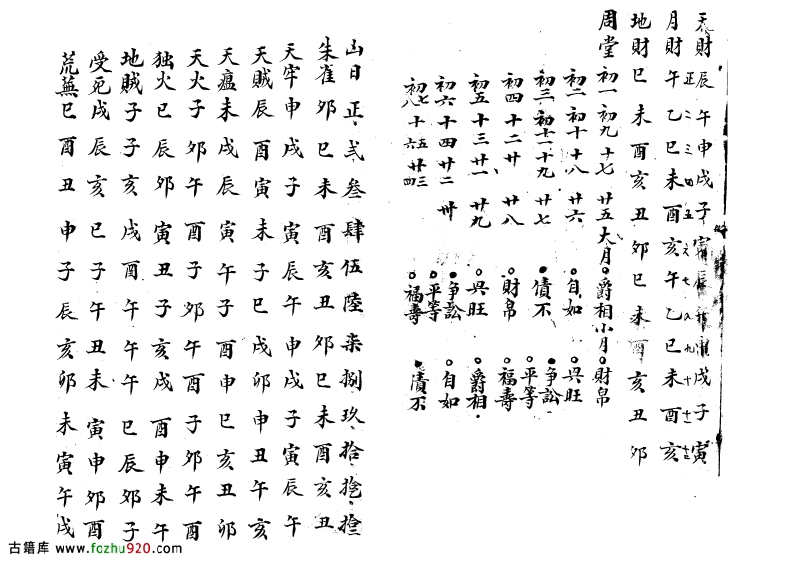 天財 辰 午 申 戌 子 寅 辰 午 申 戌 子 寅
正 二 三 四 五 六 七 八 九 十 十一 十二
月財 午 乙 巳 未 酉 亥 午 乙 巳 未 酉 亥
地財 巳 未 酉 亥 丑 卯 巳 未 酉 亥 丑 卯
周堂 初一 初九 十七 廿五 大月 爵相 小月 財帛
初二 初十 十八 廿六 自如 兴旺
初三 初十一 十九 廿七 債不 争訟 平等
初四 十二 廿 廿八 財帛 福壽
初五 十三 廿一 廿九 兴旺 爵相
初六 十四 廿二 卅 争訟 自如
初七 十五 廿三 平等 債不
初八 十六 廿四 福壽
山日 正 弍 叁 肆 伍 陸 柒 捌 玖 拾
朱雀 卯 巳 未 酉 亥 丑 卯 巳 未 酉 亥 丑
天牢 申 戌 子 寅 辰 午 申 戌 子 寅 辰 午
天賊 辰 酉 寅 未 子 巳 戌 卯 申 丑 午 亥
天瘟 未 戌 辰 寅 午 子 酉 申 巳 亥 丑 卯
天火 子 卯 午 酉 子 卯 午 酉 子 卯 午 酉
独火 巳 辰 卯 寅 丑 子 亥 戌 酉 申 未 午
地賊 子 子 亥 戌 酉 午 午 午 巳 辰 卯 子
受死 戌 辰 亥 巳 子 午 丑 未 寅 申 卯 酉
荒蕪 巳 酉 丑 申 子 辰 亥 卯 未 寅 午 戌
古籍库 www.fozhu920.com